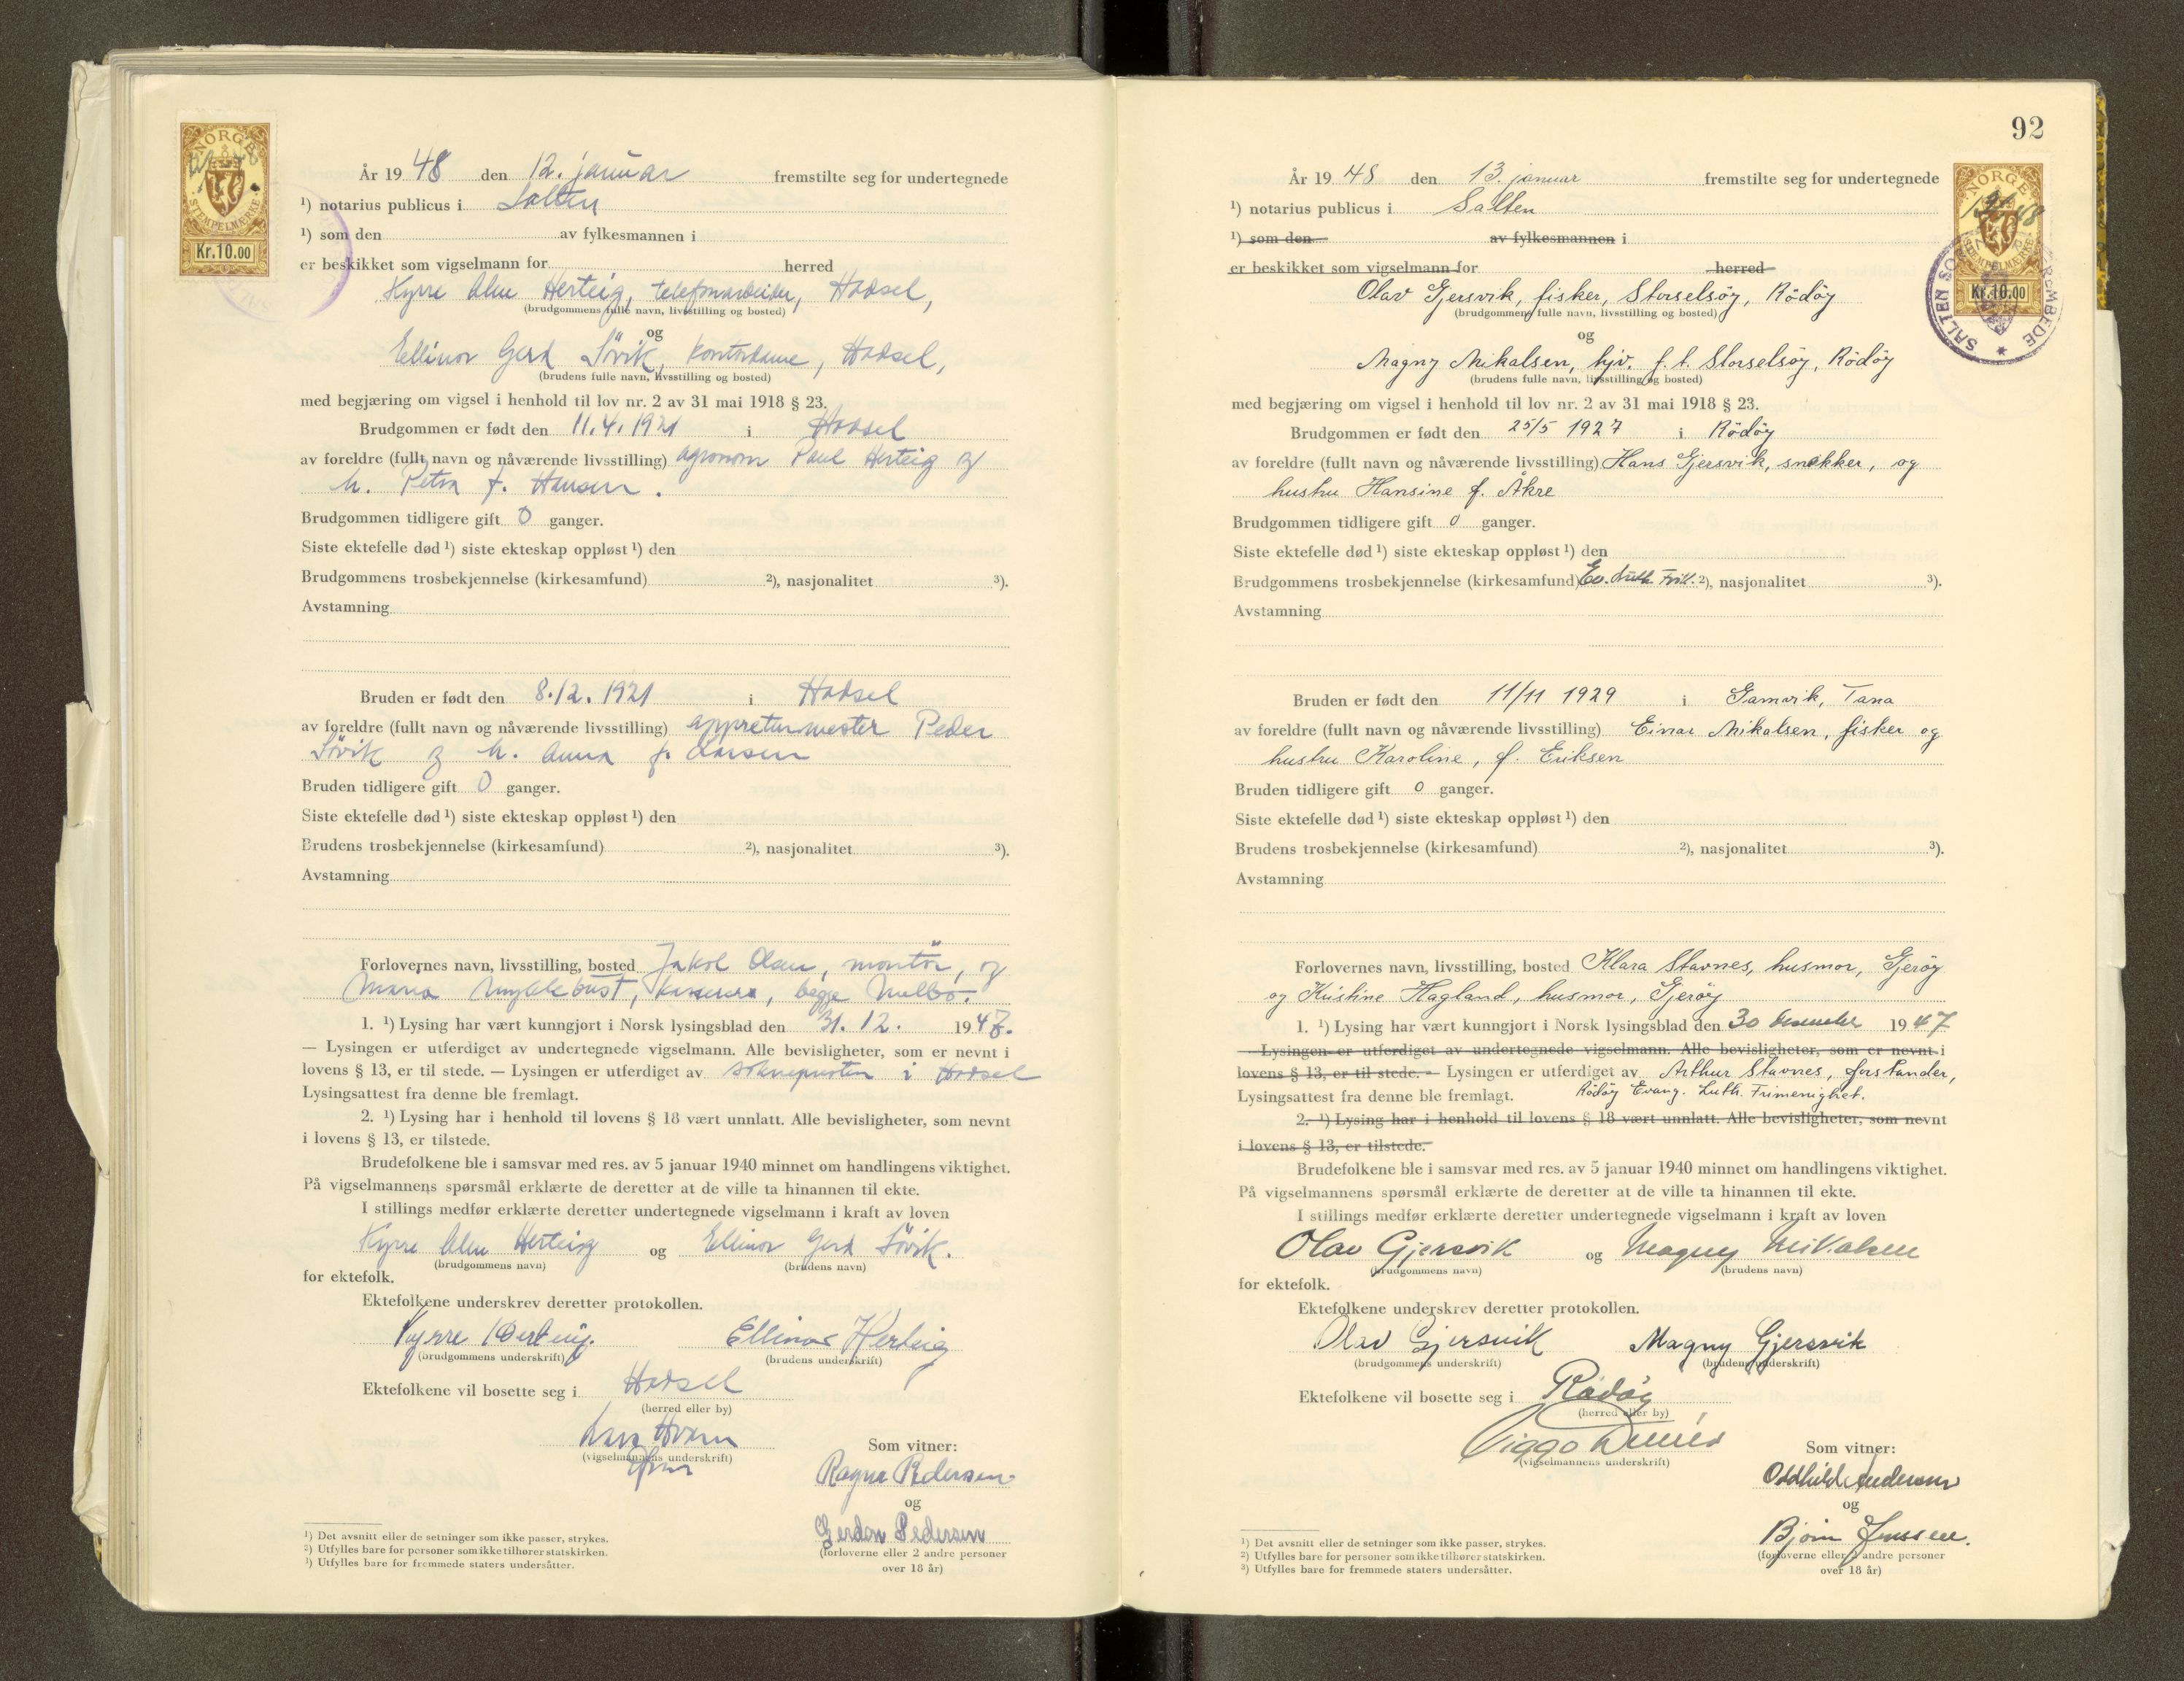 NORGE
STEMPELMERKE
Kr.10.00
År 1948 den 12. januar fremstilte seg for undertegnede
¹) notarius publicus i Salten
¹) som den av fylkesmannen i
er beskikket som vigselmann for herred
Kyrre Herteig, telefonarbeider, Hadsel,
(brudgommens fulle navn, livsstilling og bosted)
og
Ellinor Gerd Søvik, kontordame, Hadsel,
(brudens fulle navn, livsstilling og bosted)
med begjæring om vigsel i henhold til lov nr. 2 av 31 mai 1918 § 23.
Brudgommen er født den 11.4.1921 i Hadsel
av foreldre (fullt navn og nåværende livsstilling) agronom Paul Herteig og
h. Petra f. Hansen.
Brudgommen tidligere gift 0 ganger.
Siste ektefelle død ¹) siste ekteskap oppløst ¹) den
Brudgommens trosbekjennelse (kirkesamfund) ²), nasjonalitet ³).
Avstamning
Bruden er født den 8.12.1921 i Hadsel
av foreldre (fullt navn og nåværende livsstilling) appreturmester Peder
Søvik og h. Anna f. Larsen
Bruden tidligere gift 0 ganger.
Siste ektefelle død ¹) siste ekteskap oppløst ¹) den
Brudens trosbekjennelse (kirkesamfund) ²), nasjonalitet ³).
Avstamning
Forlovernes navn, livsstilling, bosted Jakob Olsen, montör, og
Maria Myklebust, begge Melbo.
1. ¹) Lysing har vært kunngjort i Norsk lysingsblad den 31. 12. 1947.
— Lysingen er utferdiget av undertegnede vigselmann. Alle bevisligheter, som er nevnt i
lovens § 13, er til stede. — Lysingen er utferdiget av sokneprsten i Hadsel
Lysingsattest fra denne ble fremlagt.
2. ¹) Lysing har i henhold til lovens § 18 vært unnlatt. Alle bevisligheter, som nevnt
i lovens § 13, er tilstede.
Brudefolkene ble i samsvar med res. av 5 januar 1940 minnet om handlingens viktighet.
På vigselmannens spørsmål erklærte de deretter at de ville ta hinannen til ekte.
I stillings medfør erklærte deretter undertegnede vigselmann i kraft av loven
Kyrre Herteig og Ellinor Gerd Søvik.
(brudgommens navn) (brudens navn)
for ektefolk.
Ektefolkene underskrev deretter protokollen.
Kyrre Herteig. Ellinor Herteig
(brudgommens underskrift) (brudens underskrift)
Ektefolkene vil bosette seg i Hadsel
(herred eller by)
(vigselmannens underskrift)
Som vitner:
Ragna Pedersen
og
Gerdon Pedersen
(forloverne eller 2 andre personer
over 18 år)
¹) Det avsnitt eller de setninger som ikke passer, strykes.
²) Utfylles bare for personer som ikke tilhører statskirken.
³) Utfylles bare for fremmede staters undersåtter.
92
NORGE
STEMPELMERKE
Kr.10.00
SALTEN SORENSKRIVEREMBEDE
År 1948 den 13. januar fremstilte seg for undertegnede
¹) notarius publicus i Salten
¹) som den av fylkesmannen i
er beskikket som vigselmann for herred
Olav Gjersvik, fisker, Storselsöy, Rödöy
(brudgommens fulle navn, livsstilling og bosted)
og
Magny Mikalsen, hjv. f. t. Storselsöy, Rödöy
(brudens fulle navn, livsstilling og bosted)
med begjæring om vigsel i henhold til lov nr. 2 av 31 mai 1918 § 23.
Brudgommen er født den 25/5 1927 i Rödöy
av foreldre (fullt navn og nåværende livsstilling) Hans Gjersvik, snekker, og
hustru Hansine f. Åkre
Brudgommen tidligere gift 0 ganger.
Siste ektefelle død ¹) siste ekteskap oppløst ¹) den
Brudgommens trosbekjennelse (kirkesamfund) Ev. Luth. Frik. ²), nasjonalitet ³).
Avstamning
Bruden er født den 11/11 1929 i Gamvik, Tana
av foreldre (fullt navn og nåværende livsstilling) Einar Mikalsen, fisker og
hustru Karoline, f. Eriksen
Bruden tidligere gift 0 ganger.
Siste ektefelle død ¹) siste ekteskap oppløst ¹) den
Brudens trosbekjennelse (kirkesamfund) ²), nasjonalitet ³).
Avstamning
Forlovernes navn, livsstilling, bosted Klara Stavnes, husmor, Gjeröy
og Kristine Hagland, husmor, Gjeröy
1. ¹) Lysing har vært kunngjort i Norsk lysingsblad den 30 desember 1947
— Lysingen er utferdiget av undertegnede vigselmann. Alle bevisligheter, som er nevnt i
lovens § 13, er til stede. — Lysingen er utferdiget av Arthur Stavnes, forstander,
Lysingsattest fra denne ble fremlagt. Rödöy Evang. Luth. Frimenighet.
2. ¹) Lysing har i henhold til lovens § 18 vært unnlatt. Alle bevisligheter, som nevnt
i lovens § 13, er tilstede.
Brudefolkene ble i samsvar med res. av 5 januar 1940 minnet om handlingens viktighet.
På vigselmannens spørsmål erklærte de deretter at de ville ta hinannen til ekte.
I stillings medfør erklærte deretter undertegnede vigselmann i kraft av loven
Olav Gjersvik og Magny Mikalsen
(brudgommens navn) (brudens navn)
for ektefolk.
Ektefolkene underskrev deretter protokollen.
Olav Gjersvik Magny Gjersvik
(brudgommens underskrift) (brudens underskrift)
Ektefolkene vil bosette seg i Rödöy
(herred eller by)
Viggo
(vigselmannens underskrift)
Som vitner:
Oddhild Andersen
og
Bjørn Jenssen.
(forloverne eller 2 andre personer
over 18 år)
¹) Det avsnitt eller de setninger som ikke passer, strykes.
²) Utfylles bare for personer som ikke tilhører statskirken.
³) Utfylles bare for fremmede staters undersåtter.